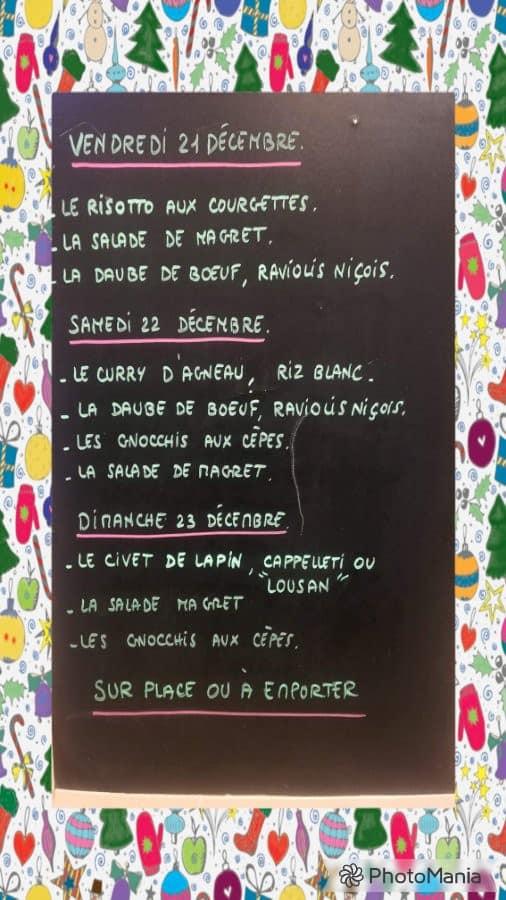 VENDREDI 21 DÉCEMBRE.
LE RISOTTO AUX COURGETTES.
- LA SALADE DE MAGRET.
LA DAUBE DE BOEUF, RAVIOLIS NIÇOIS.
SAMEDI 22 DÉCEMBRE.
- LE CURRY D'AGNEAU, RIZ BLANC.
- LA DAUBE DE BOEUF, RAVIOLIS NIÇOIS.
- LES GNOCCHIS AUX CÊPES.
- LA SALADE DE MAGRET.
DIMANCHE 23 DÉCEMBRE
- LE CIVET DE LAPIN, CAPPELLETI OU
"LOUSAN"
- LA SALADE MAGRET
- LES GNOCCHIS AUX CÊPES.
SUR PLACE OU À EMPORTER
PhotoMania